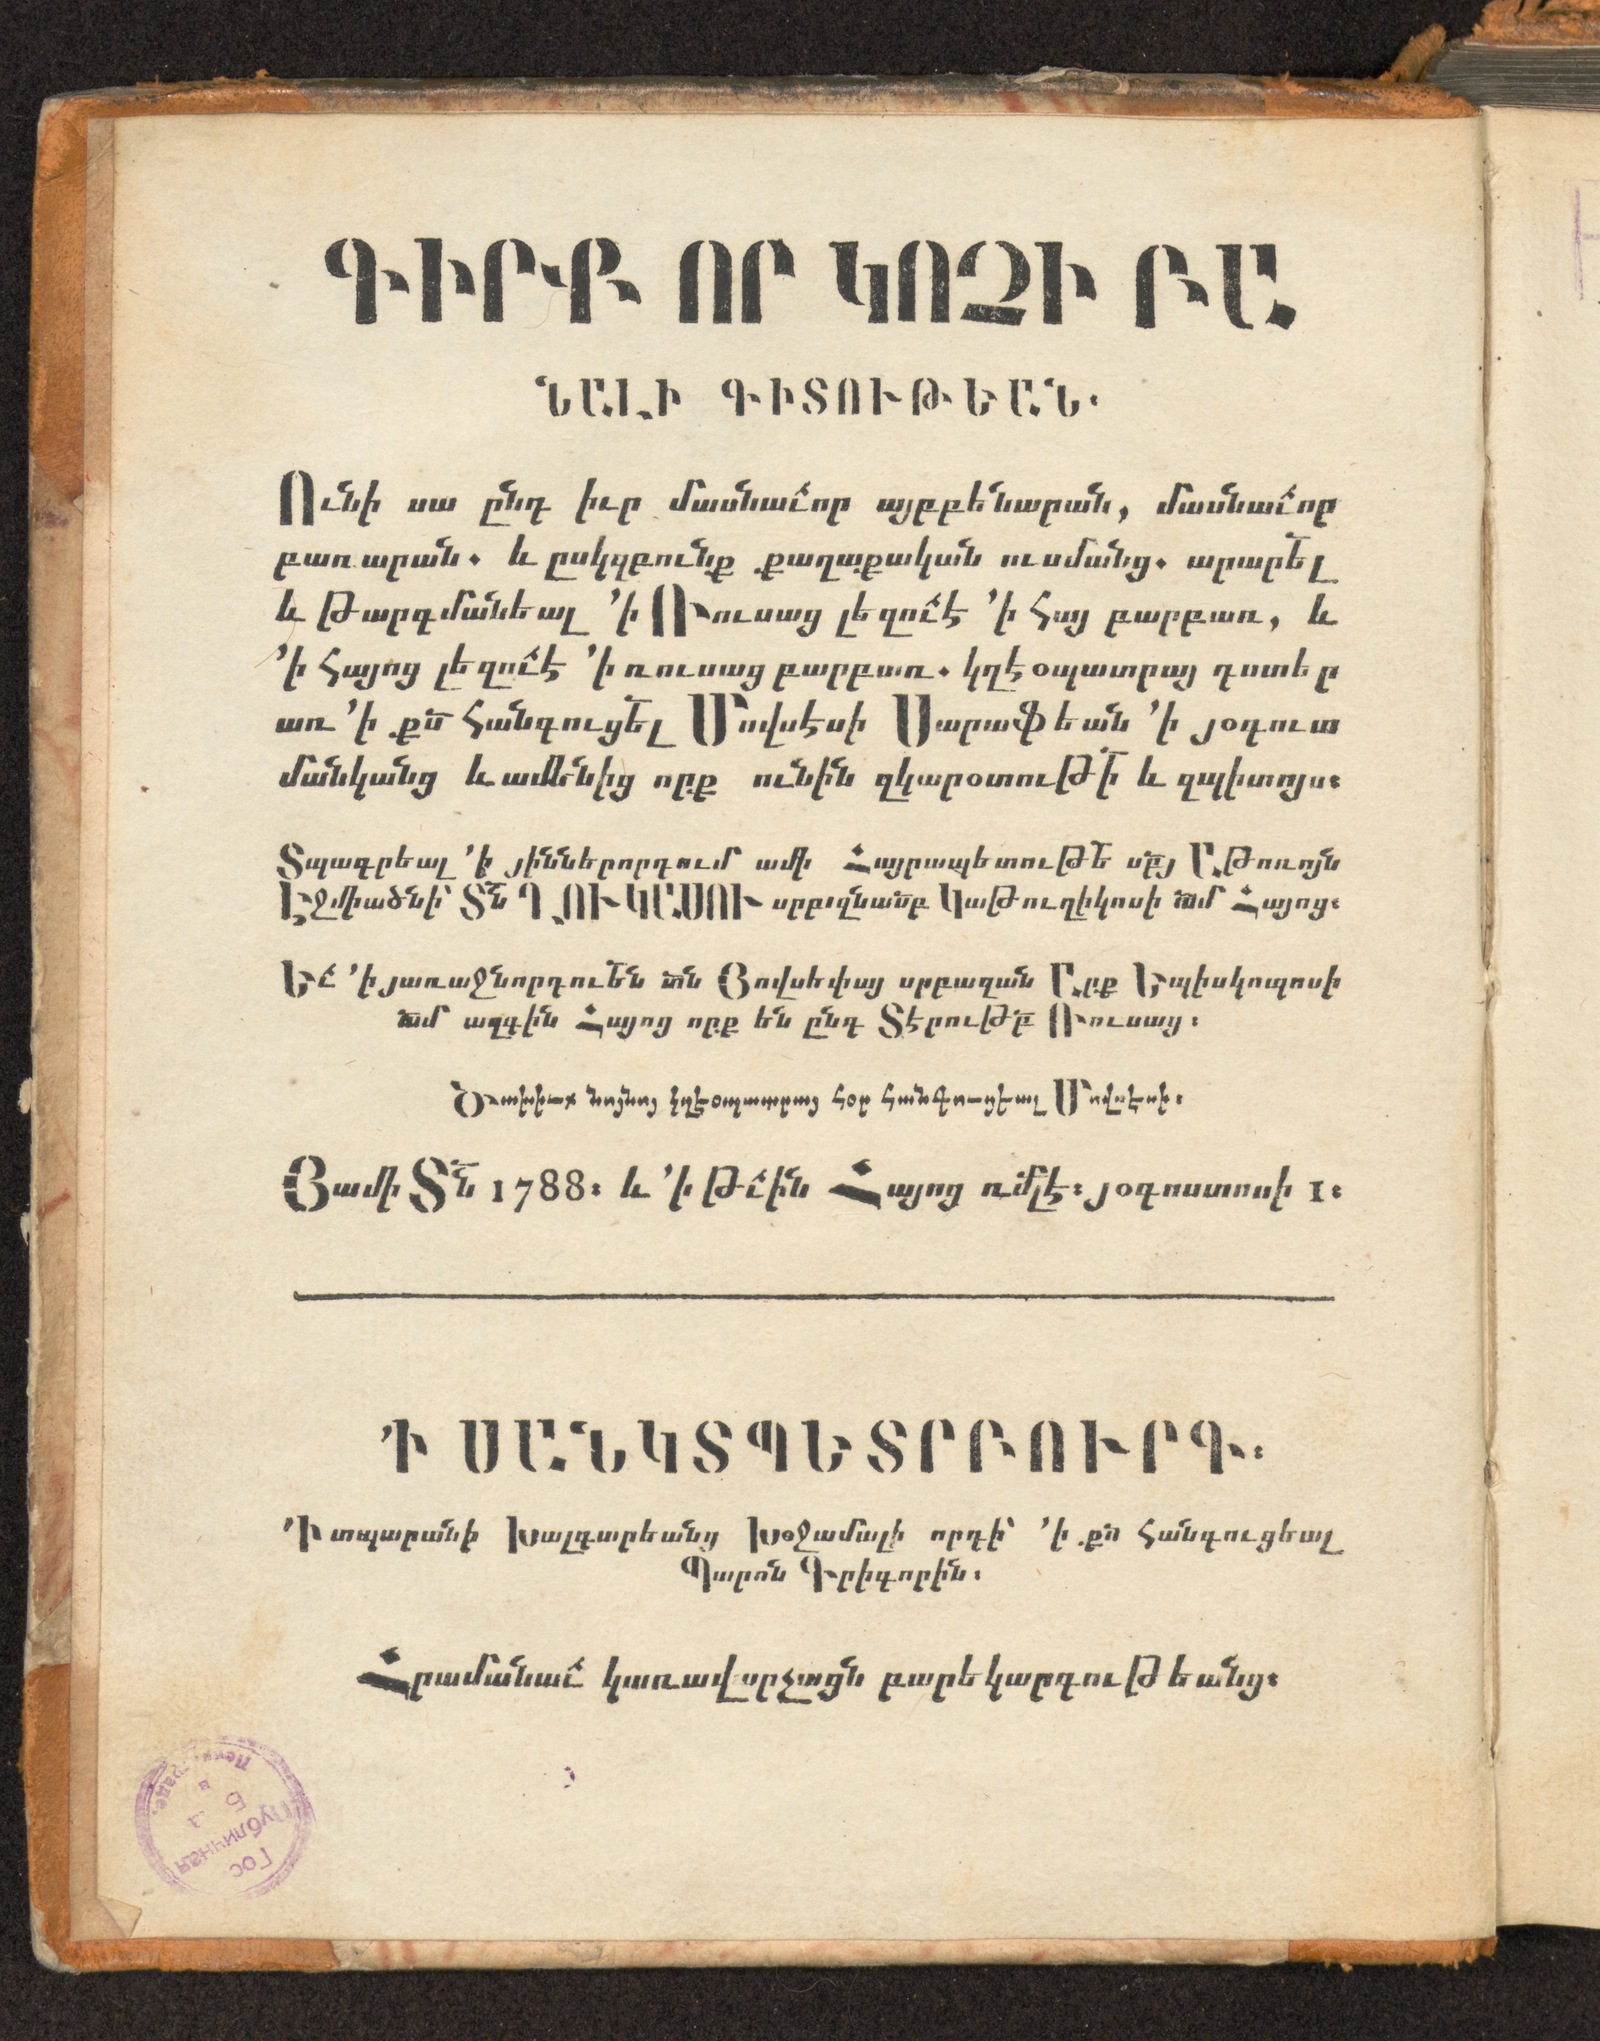 ԳԻՐՔ ՈՐ ԿՈՉԻ ԲԱ
ՆԱԼԻ ԳԻՏՈՒԹԵԱՆ.
Ունի սա ընդ իւր մասնաւ՟որ այբբենարան, մասնաւ՟որ
բառարան. և ըսկզբունք քաղաքական ուսմանց. արարե՟լ
և թարգմանեալ ՚ի Ռուսաց լեզուէ ՚ի Հայ բարբառ, և
՚ի Հայոց լեզուէ ՚ի ռուսաց բարբառ. կղէօպատրայ դստեր
առ ՚ի ք՟ս հանգուցե՟լ Մովսէսի Սարաֆեան ՚ի յօգուտ
մանկանց և ամենից որք ունին զկարօտութի՟ և զպիտոյս։
Տպագրեալ ՚ի յիններորդում ամի Հայրապետութե՟ ս՟րբյ Աթոռոյն
Էջմիածնի՝ Տ՟ն ՂՈՒԿԱՍՈՒ սրբազնասբ Կաթուղիկոսի ա՟մ Հայոց։
Եւ՟ ՚ի յառաջնորդուե՟ն տ՟ն Յովսեփայ սրբազան Արք Եպիսկոպոսի
ա՟մ ազգին Հայոց որք են ընդ Տէրութբ՟ Ռուսաց։
Ծախիւք նոյնոց կղէօպատրայ հօր հանգուցեալ Մովսէսի։
Յամի Տ՟ն 1788։ և ՚ի թւ՟ին Հայոց ռմլէ։ յօգոստոսի 1։
Ի ՍԱՆԿՏՊԵՏՐԲՈՒՐԳ.
՚Ի տպարանի Խալդարեանց Խօջամալի որդի՝ ՚ի ք՟ս հանգուցեալ
Պարոն Գրիգորին։
Հրամանաւ՟ կառավարչացն բարեկարգութեանց։
Гос.
Публичная
Б
в